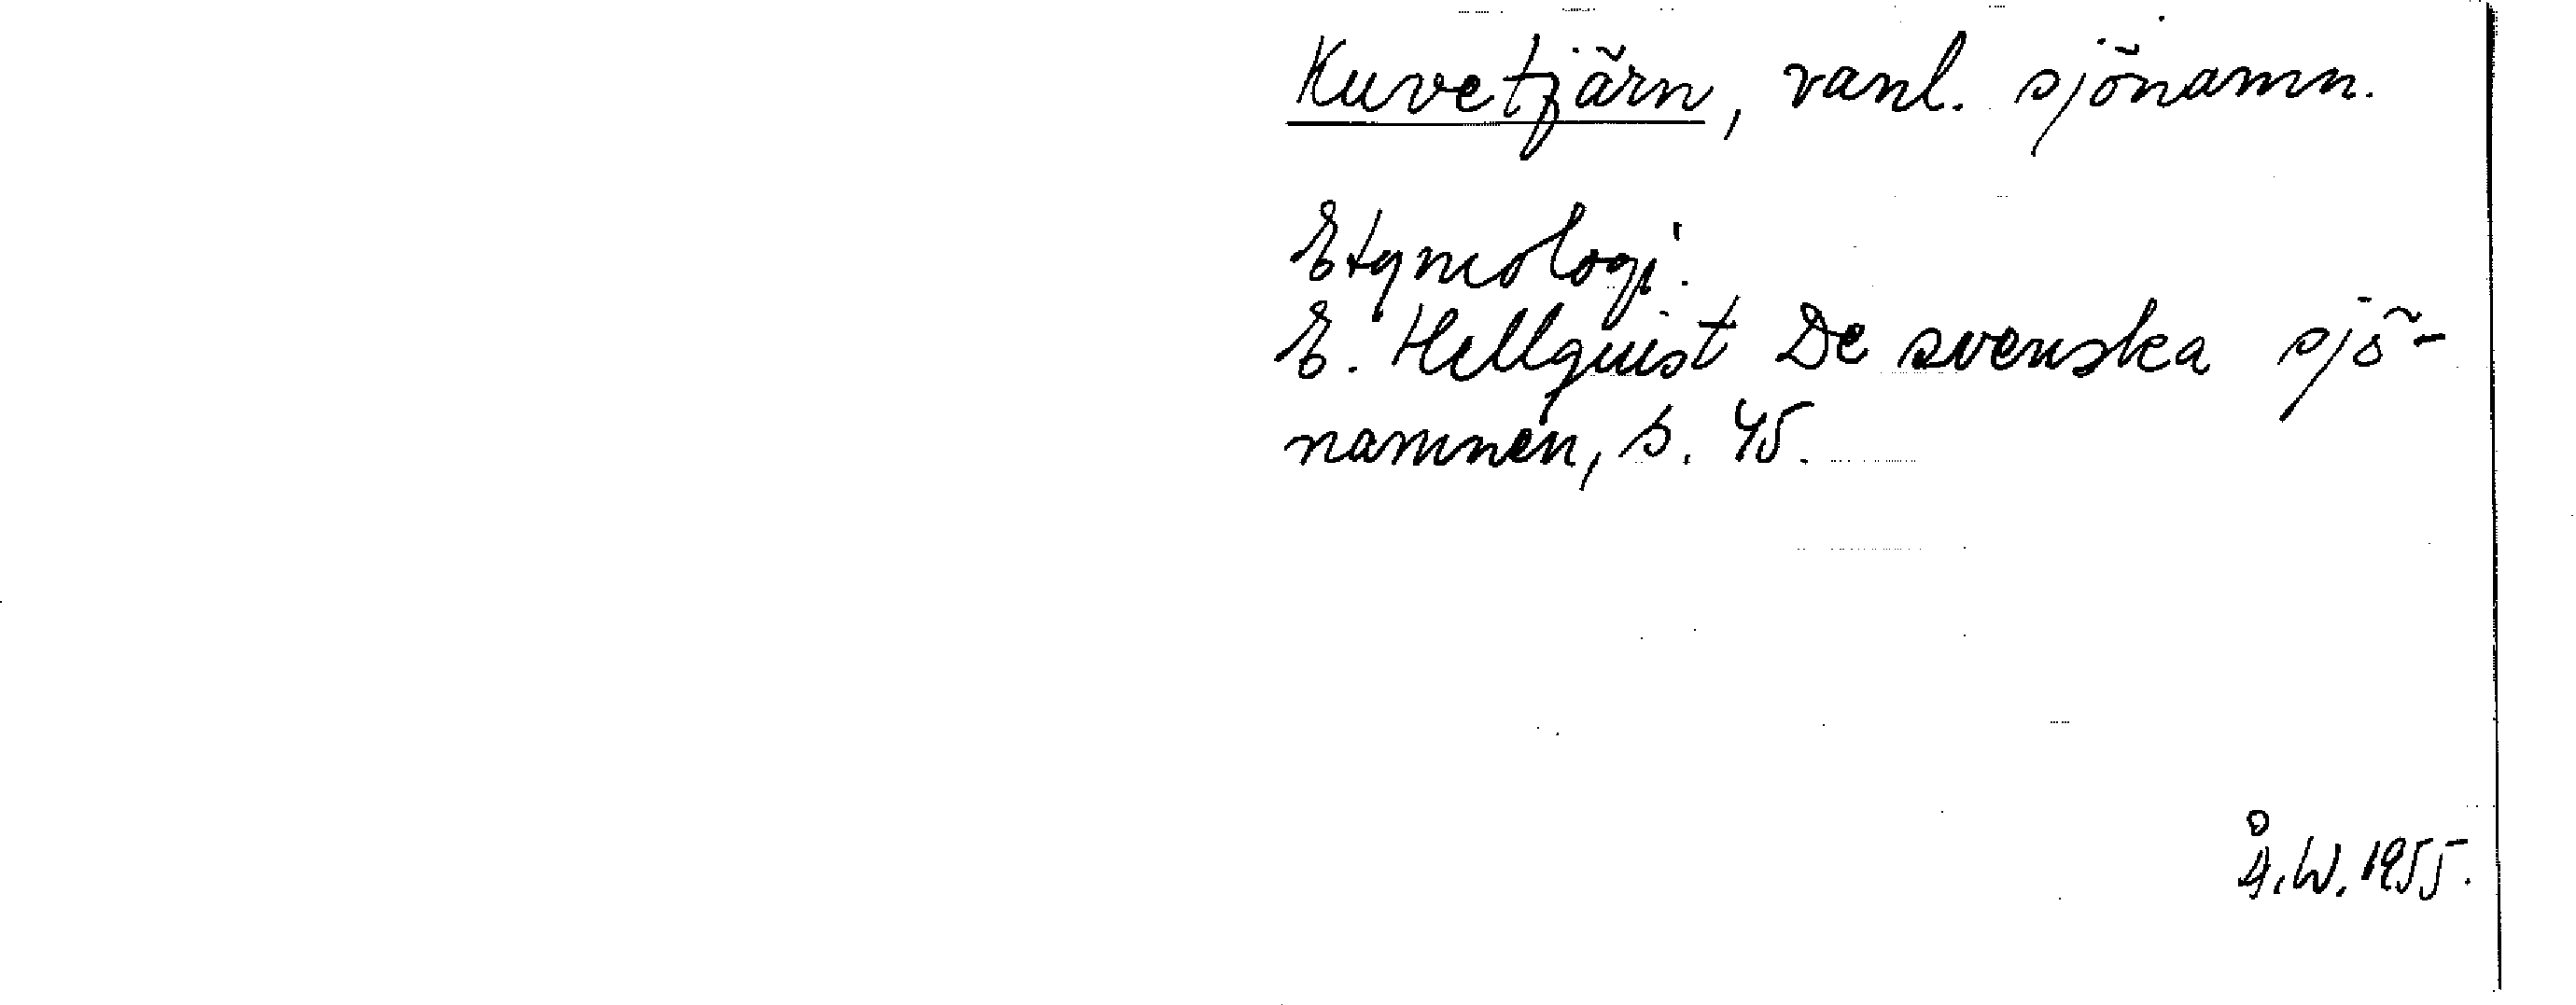 Kuvetjärn, vanl. sjönamn.
Etymologi.
E. Hellquist De svenska sjö-
namnen, s. 45.
Å.W. 1955.